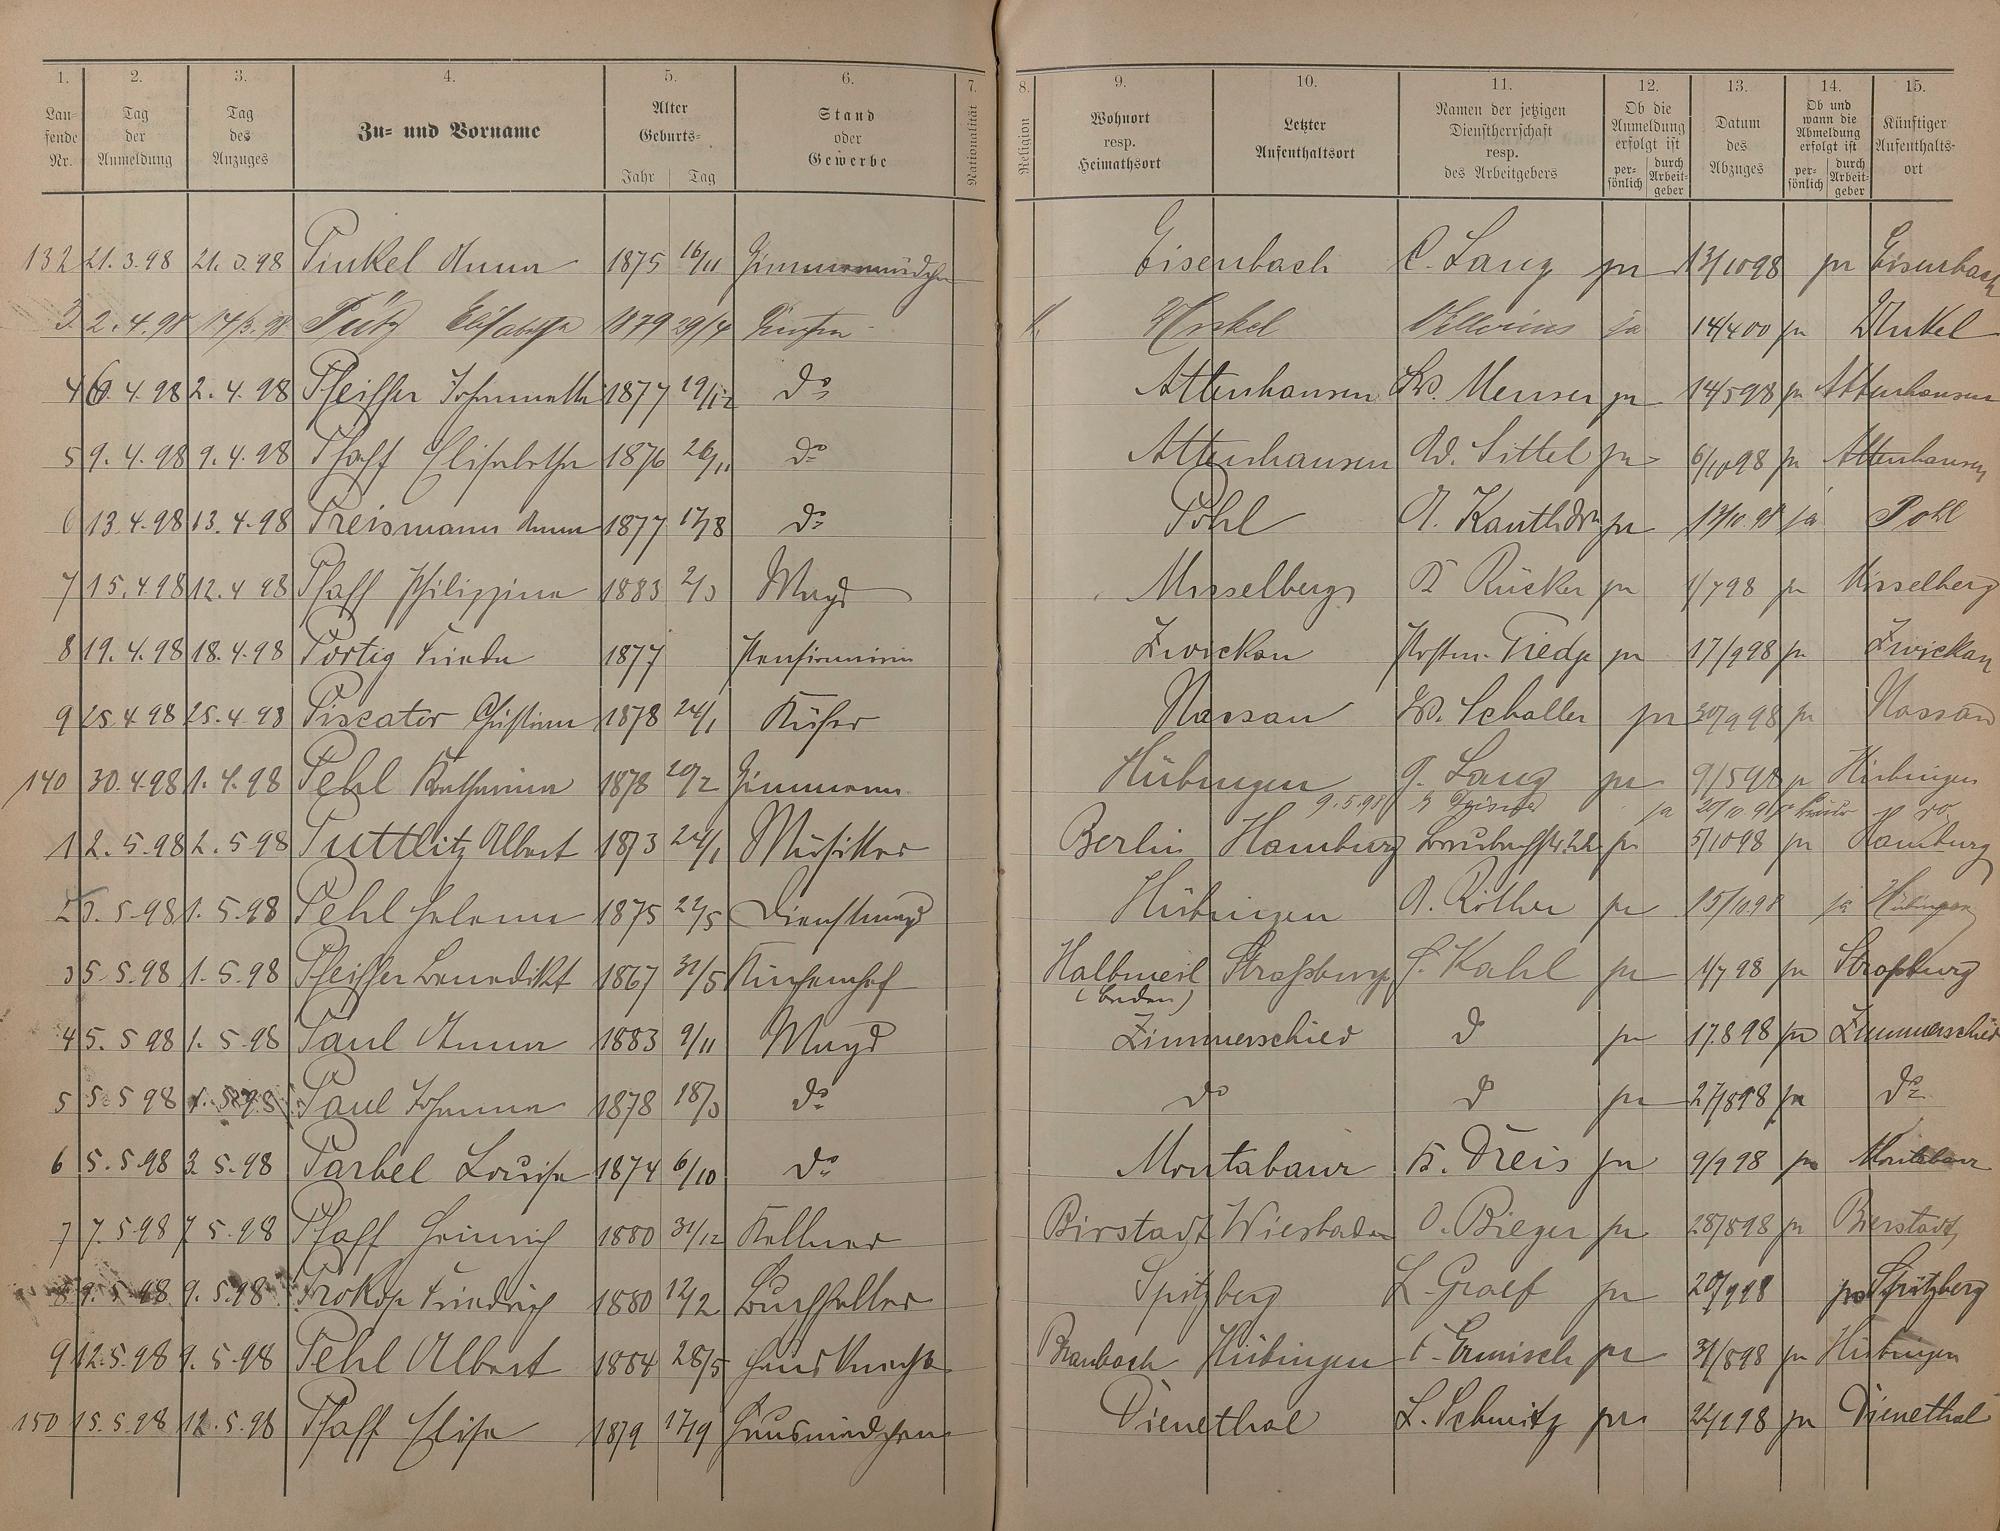 1. 2. 3. 4. 5. 6. 7. 8. 9. 10. 11. 12. 13. 14. 15.
Laufende Nr. Tag der Anmeldung Tag des Anzuges Zu- und Vorname Alter Geburts- Jahr Tag Stand oder Gewerbe Nationalität Religion Wohnort resp. Heimathsort Letzter Aufenthaltsort Namen der jetzigen Dienstherrschaft resp. des Arbeitgebers Ob die Anmeldung erfolgt ist persönlich durch Arbeitgeber Datum des Abzuges Ob und wann die Abmeldung erfolgt ist persönlich durch Arbeitgeber Künftiger Aufenthaltsort
132 21.3.98 21.3.98 Pinkel Anna 1875 16/11 Zimmermädchen Eisenbach C. Lang 13/10 98 Eisenbach
3 2.4.98 17/3.98 Pütz Elisabetha 1879 29/4 ja 14/4 00 Winkel
4 6.4.98 2.4.98 Pfeiffer Johannetta 1877 19/12 do Attenhausen W. Meuser 14/5 98 Attenhausen
5 9.4.98 9.4.98 Pfaff Elisabetha 1876 26/11 do Attenhausen W. Sittel 6/10 98 Attenhausen
6 13.4.98 13.4.98 Preismann Anna 1877 17/8 do Pohl A. ja Pohl
7 15.4.98 12.4.98 Pfaff Philippina 1883 2/3 Magd Misselberg Rücker 1/7 98 Misselberg
8 19.4.98 18.4.98 Portig Frieda 1877 Zwickau 17/9 98 Zwickau
9 25.4.98 25.4.98 Piscator Christian 1878 24/1 Küfer Nassau W. Schaller 30/9 98 Nassau
140 30.4.98 1.4.98 Pehl Katharina 1878 20/2 Hübingen G. Lang 9/5 98 Hübingen
9.5.98 ja 20/10 98
1 2.5.98 2.5.98 Puttlitz Albert 1873 24/1 Musiker Berlin Hamburg 5/10 98 Hamburg
2 5.5.98 1.5.98 Pehl Helena 1875 22/5 Dienstmagd Hübingen A. Röther 15/10 98 ja Hübingen
3 5.5.98 1.5.98 Pfeiffer Benedikt 1867 31/5 Küchenchef Halbmeil Straßburg Kahl 1/7 98 Straßburg
(Baden)
4 5.5.98 1.5.98 Paul Anna 1883 9/11 Magd Zimmerschied do 17.8 98 Zimmerschied
5 5.5.98 1.5.98 Paul Johanna 1878 18/3 do do do 27/8 98 do
6 5.5.98 3.5.98 Parbel Louise 1874 6/10 do Montabaur Dreis 9/9 98 Montabaur
7 7.5.98 7.5.98 Pfaff Heinrich 1880 31/12 Kellner Birstadt Wiesbaden O. Bieger 28/8 98 Bierstadt
8 9.5.98 9.5.98 Prokop Friedrich 1880 12/2 Buchhalter Spitzberg L. Graef 20/9 98 Spitzberg
9 12.5.98 9.5.98 Pehl Albert 1884 28/5 Hausknecht Braubach Hübingen Ermisch 31/8 98 Hübingen
150 15.5.98 12.5.98 Pfaff Elise 1879 17/9 Hausmädchen Dienethal L. Schmitz Dienethal